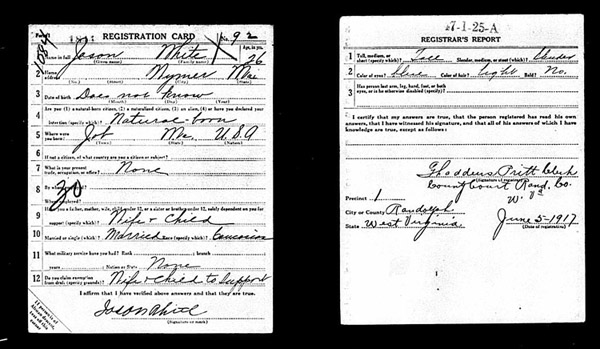 1084
REGISTRATION CARD No. 92
1 Name in full Jason White Age, in yrs. 26
(Given name) (Family name)
2 Home address Nymer
3 Date of birth Does not know
(Month) (Day) (Year)
4 Are you (1) a natural-born citizen, (2) a naturalized citizen, (3) an alien, (4) or have you declared your
intention (specify which)? Natural-born
5 Where were you born? Job U.S.A
(Town) (State) (Nation)
6 If not a citizen, of what country are you a citizen or subject?
7 What is your present trade, occupation, or office? None
8 By whom employed?
Where employed?
9 Have you a father, mother, wife, child under 12, or a sister or brother under 12, solely dependent on you for
support (specify which)? Wife + Child
10 Married or single (which)? Married Race (specify which)? Caucasian
11 What military service have you had? Rank ; branch
years ; Nation or State None
12 Do you claim exemption from draft (specify grounds)? Wife + Child to Support
I affirm that I have verified above answers and that they are true.
Jason White
(Signature or mark)
If person is of African descent, tear off this corner
27-1-25-A
REGISTRAR'S REPORT
1 Tall, medium, or short (specify which)? Tall Slender, medium, or stout (which)? Slender
2 Color of eyes? Blue Color of hair? Light Bald? No.
3 Has person lost arm, leg, hand, foot, or both
eyes, or is he otherwise disabled (specify)?
I certify that my answers are true, that the person registered has read his own
answers, that I have witnessed his signature, and that all of his answers of which I have
knowledge are true, except as follows:
Thaddeus Pritt Clerk
(Signature of registrar)
County Court Rand. Co.
W. Va
Precinct 1
City or County Randolph
State West Virginia. June 5-1917
(Date of registration)